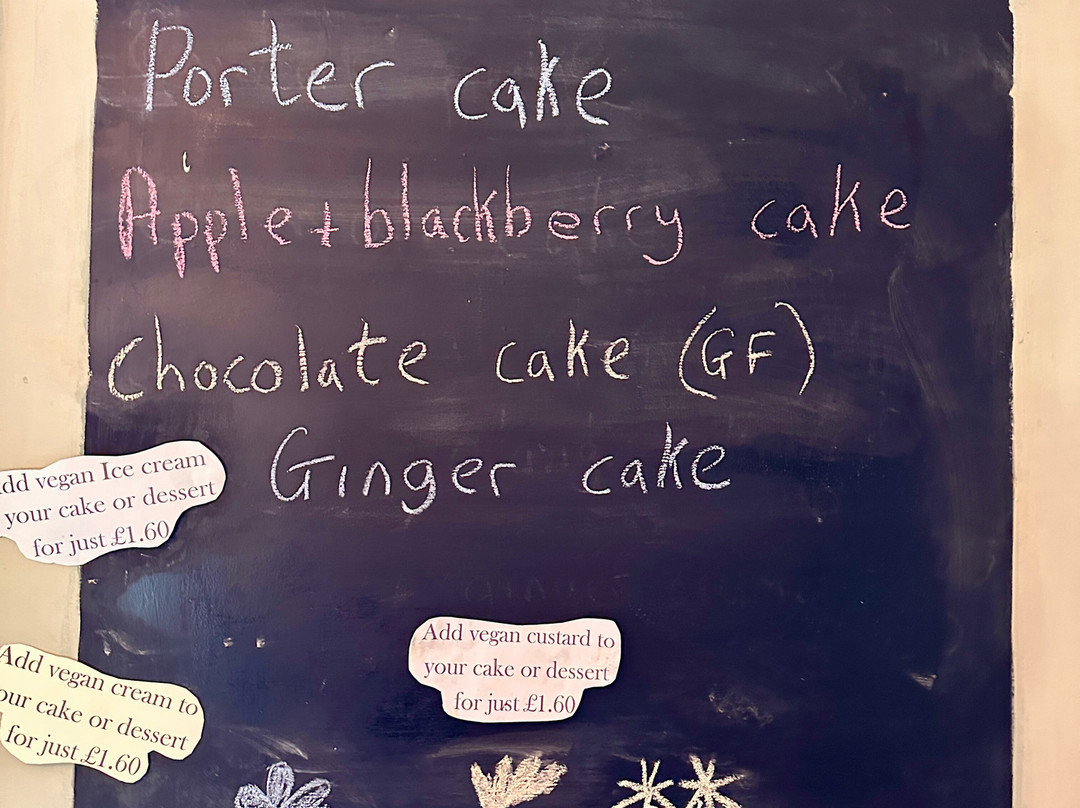 Porter cake
Apple + blackberry cake
Chocolate cake (GF)
Ginger cake
vegan Ice cream
your cake or dessert
for just £1.60
Add vegan custard to
your cake or dessert
for just £1.60
Add vegan cream to
cake or dessert
for just £1.60